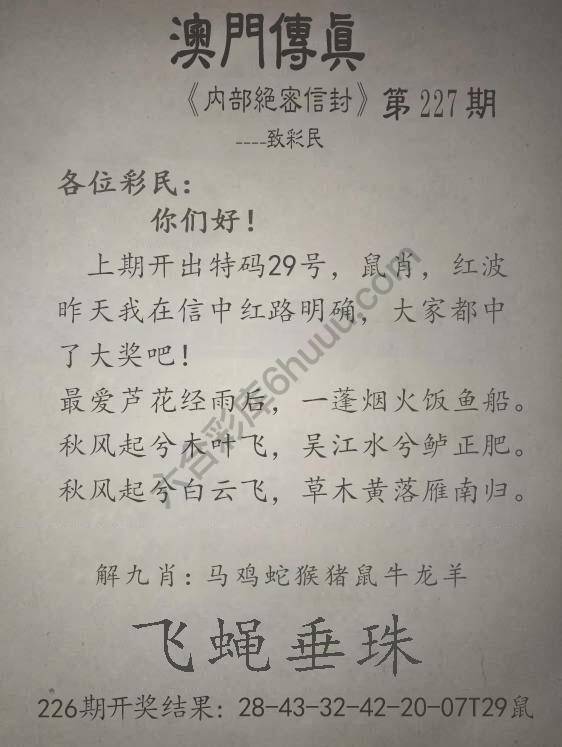 澳門傳眞
《内部絕密信封》第227期
----致彩民
各位彩民：
你们好！
上期开出特码29号，鼠肖，红波
昨天我在信中红路明确，大家都中
了大奖吧！
最爱芦花经雨后，一蓬烟火饭鱼船。
秋风起兮木叶飞，吴江水兮鲈正肥。
秋风起兮白云飞，草木黄落雁南归。
解九肖：马鸡蛇猴猪鼠牛龙羊
飞蝇垂珠
226期开奖结果：28-43-32-42-20-07T29鼠
六合彩库6huuu.com